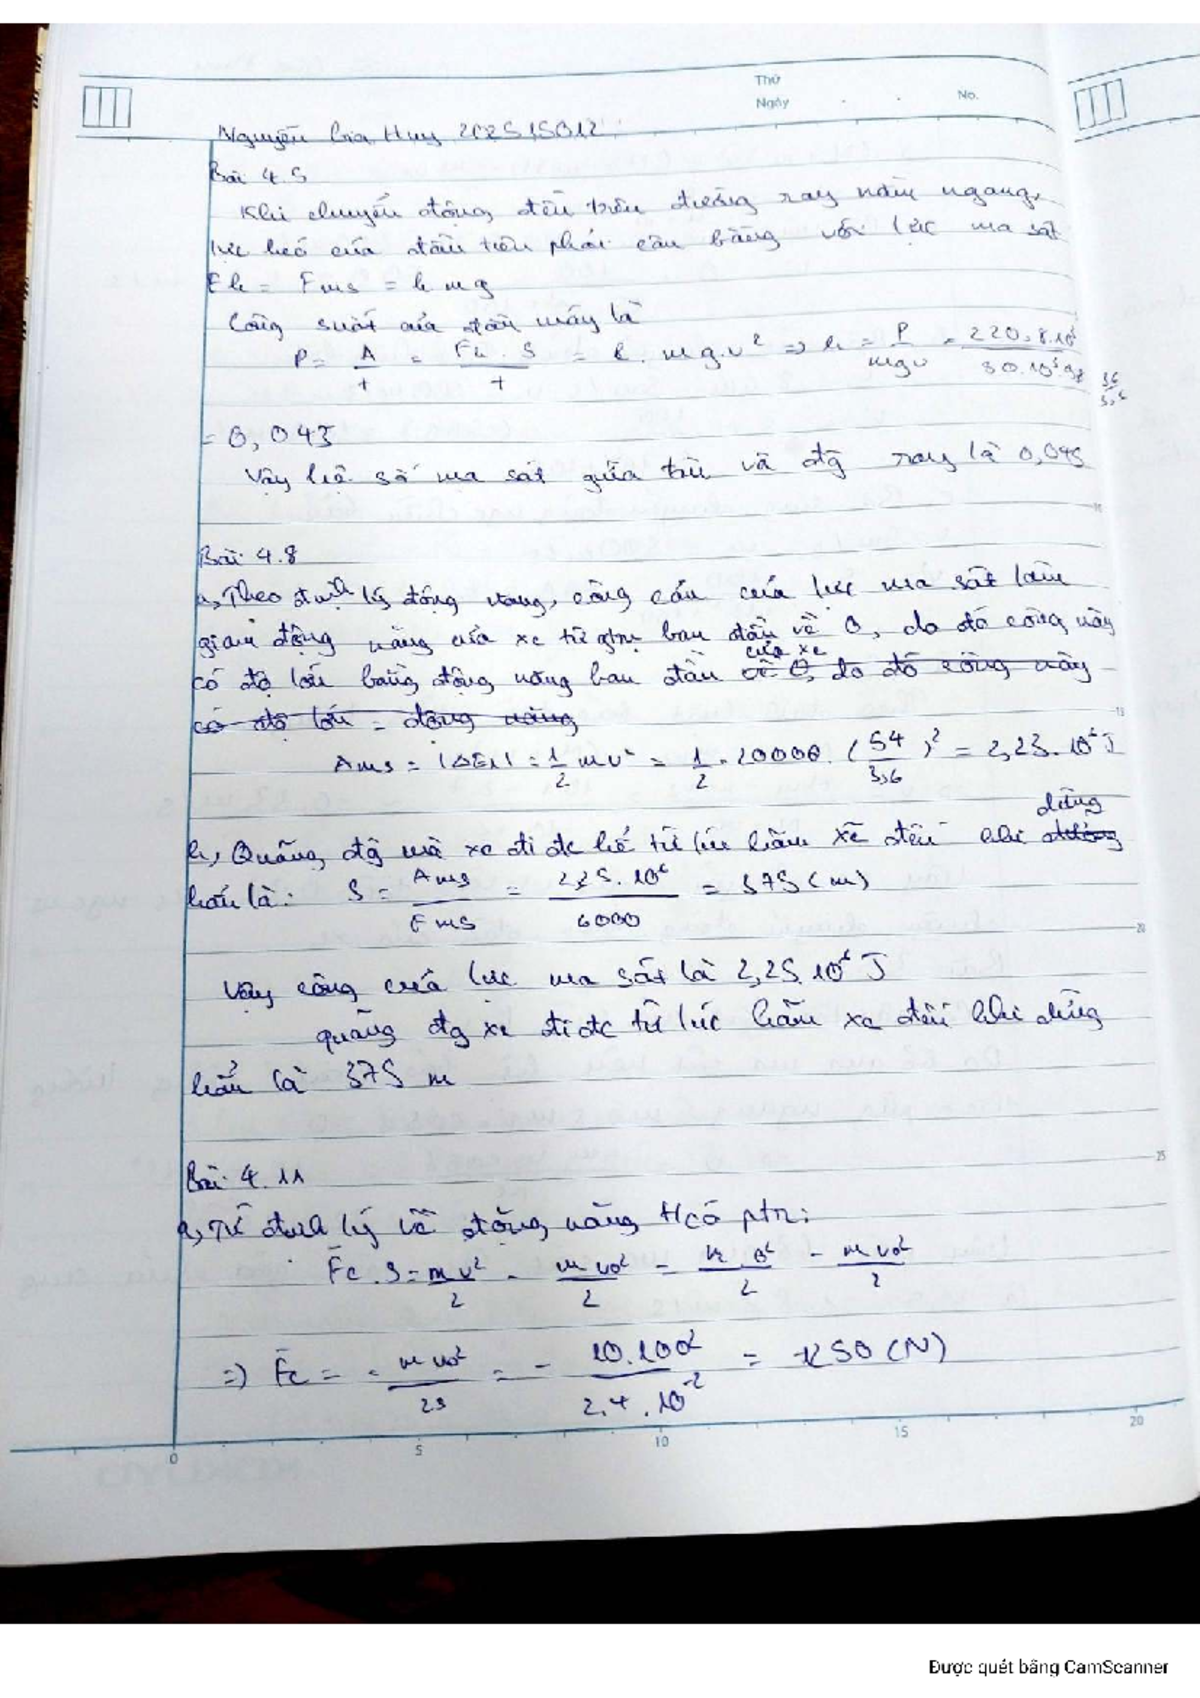 Thứ
Ngày . . No.
Nguyễn Gia Huy 202515012
Bài 4.5
Khi chuyển động đều trên đường ray nằm ngang,
lực kéo của đầu tiên phải cân bằng với lực ma sát
Fk = Fms = k mg
Công suất của đầu máy là
P = A/t = Fk . S/t = k . mg.v² => k = P/mgv = 220,8.10³/50.10³.9,8 36/3,6
= 0,045
Vậy hệ số ma sát giữa tàu và đg ray là 0,045
Bài 4.8
a, Theo định lý động năng, công cản của lực ma sát làm
giảm động năng của xe từ gtrị ban đầu về 0, do đó công này
có độ lớn bằng động năng ban đầu của xe về 0, do đó công này
có độ lớn = động năng
Ams = |ΔEđ| = 1/2 mv² = 1/2 . 20000 . (54/3,6)² = 2,25.10⁶ J
b, Quãng đg mà xe đi đc kể từ lúc hãm xe đến khi dừng
hẳn là: S = Ams/Fms = 2,25.10⁶/6000 = 375 (m)
Vậy công của lực ma sát là 2,25.10⁶ J
quãng đg xe đi đc từ lúc hãm xe đến khi dừng
hẳn là 375 m
Bài 4.11
a, Từ định lý về động năng ta có ptr:
F̄c . S = mv²/2 - mv₀²/2 = m.0²/2 - mv₀²/2
=> F̄c = - mv₀²/2s = - 10.100²/2.4.10⁻² = -1250 (N)
0 5 10 15 20
Được quét bằng CamScanner